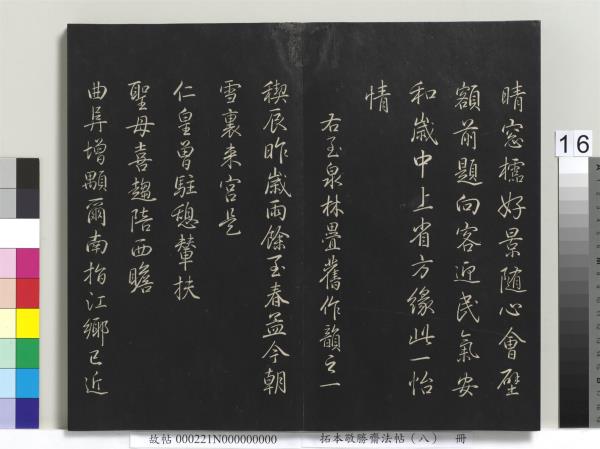 晴窓檽好景随心會壁
額前題向客迎民氣安
和歲中上省方緣此一怡
情
右玉泉林疊舊作韻之一
禊辰昨歲雨餘至春孟今朝
雪裏来宮是
仁皇曾駐憩輦扶
聖母喜趨陪西瞻
曲阜增顒爾南指江鄉已近
16
故帖 000221N000000000 拓本敬勝齋法帖（八） 冊